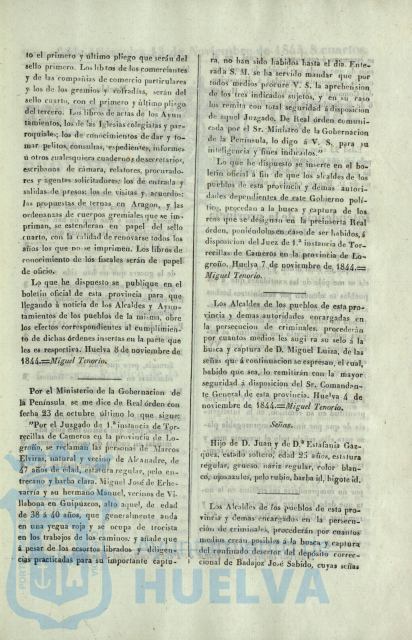 to el primero y último pliego que serán del
sello primero. Los libros de los comerciantes
y de las compañias de comercio particulares
y los de los gremios y cofradías, serán del
sello cuarto, con el primero y último pliego
del tercero. Los libros de actas de los Ayun-
tamientos, los de las Iglesias colegiatas y par-
roquiales; los de conocimientos de dar y to-
mar pelitos, consultas, espedientes, informes
ú otros cualesquiera cuadernos de secretarios,
escribanos de cámara, relatores, procurado-
res y agentes solicitadores; los de entrada y
salidas de presos; los de visitas y acuerdos:
las propuestas de ternas en Aragon, y las
ordenanzas de cuerpos gremiales que se im-
priman, se estenderan en papel del sello
cuarto, con la calidad de renovarse todos los
años los que no se imprimen. Los libros de
conocimiento de los fiscales serán de papel
de oficio.
Lo que he dispuesto se publique en el
boletin oficial de esta provincia para que
llegando á noticia de los Alcaldes y Ayun-
tamientos de los pueblos de la misma, obre
los efectos correspondientes al cumplimien-
to de dichas órdenes insertas en la parte que
les es respectiva. Huelva 8 de noviembre de
1844.=Miguel Tenorio.
Por el Ministerio de la Gobernacion de
la Península, se me dice de Real órden con
fecha 23 de octubre último lo que sigue:
"Por el Juzgado de 1.ª instancia de Tor-
recillas de Cameros en la provincia de Lo-
groño, se reclaman las personas de Marcos
Elviras, natural y vecino de Alcanadre, de
47 años de edad, estatura regular, pelo en-
trecano y barba clara. Miguel José de Eche-
varría y su hermano Manuel, vecinos de Vi-
llabona en Guipúzcoa, alto aquel, de edad
de 38 á 40 años, que generalmente anda
en una yegua roja y se ocupa de trocista
en los trabajos de los caminos; y añade que
á pesar de los ecsortos librados y diligen-
cias practicadas para su importante captu-
ra, no han sido habidos hasta el dia. Ente-
rada S. M. se ha servido mandar que por
todos medios procure V. S. la aprehension
de los tres indicados sujetos, y en su caso
los remita con total seguridad á disposicion
de aquel Juzgado. De Real órden comuni-
cada por el Sr. Ministro de la Gobernacion
de la Península, lo digo á V. S. para su
inteligencia y fines indicados."
Lo que he dispuesto se inserte en el bo-
letin oficial á fin de que los alcaldes de los
pueblos de esta provincia y demas autori-
dades dependientes de este Gobierno polí-
tico, procedan á la busca y captura de los
reos que se designan en la preinserta Real
órden, poniéndolos en caso de ser habidos, á
disposicion del Juez de 1.ª instancia de Tor-
recillas de Cameros en la provincia de Lo-
groño. Huelva 7 de noviembre de 1844.=
Miguel Tenorio.
Los Alcaldes de los pueblos de esta pro-
vincia y demas autoridades encargadas en
la persecucion de criminales, procederán
por cuantos medios les sugiera su selo á la
busca y captura de D. Miguel Luisa, de las
señas que á continuacion se espresan, el cual,
habido que sea, lo remitirán con la mayor
seguridad á disposicion del Sr. Comandan-
te General de esta provincia. Huelva 4 de
noviembre de 1844.=Miguel Tenorio.
Señas.
Hijo de D. Juan y de D.ª Estafania Gaz-
quez, estado soltero, edad 25 años, estatura
regular, grueso, nariz regular, color blan-
co, ojos azules, pelo rubio, barba id, bigote id.
Los Alcaldes de los pueblos de esta pro-
vincia y demas encargados en la persecu-
cion de criminales, procederán por cuantos
medios crean posibles á la busca y captura
del confinado desertor del depósito correc-
cional de Badajoz José Sabido, cuyas señas
HUELVA